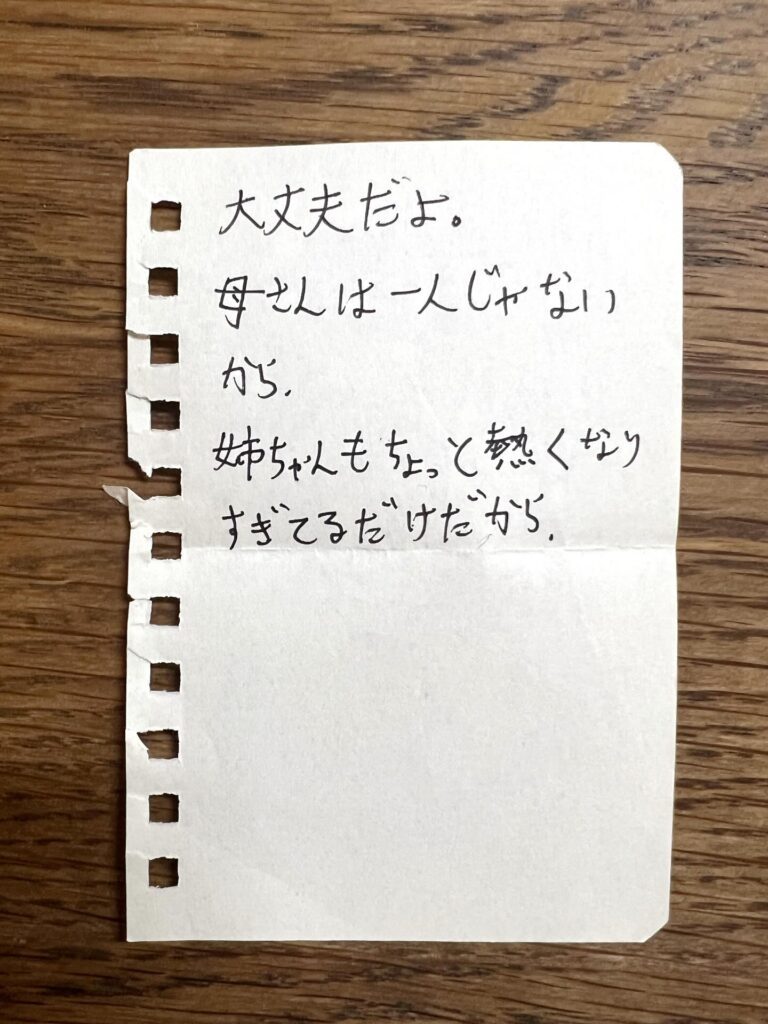 大丈夫だよ。
母さんは一人じゃない
から.
姉ちゃんもちょっと熱くなり
すぎてるだけだから.